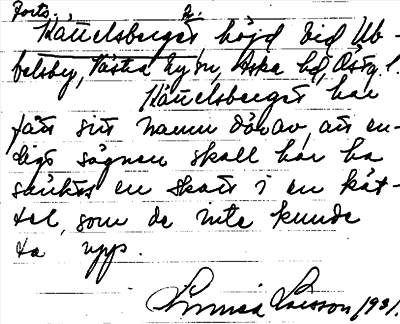 Forts.
Kättelsberget höjd vid Ub-
belsby, Västra Ny sn, Aska hd, Östg. l.
Kättelsberget har
fått sitt namn därav, att en-
ligt sägnen skall här ha
sänkts en skatt i en kät-
tel, som de inte kunde
ta upp.
Larsson 1931.